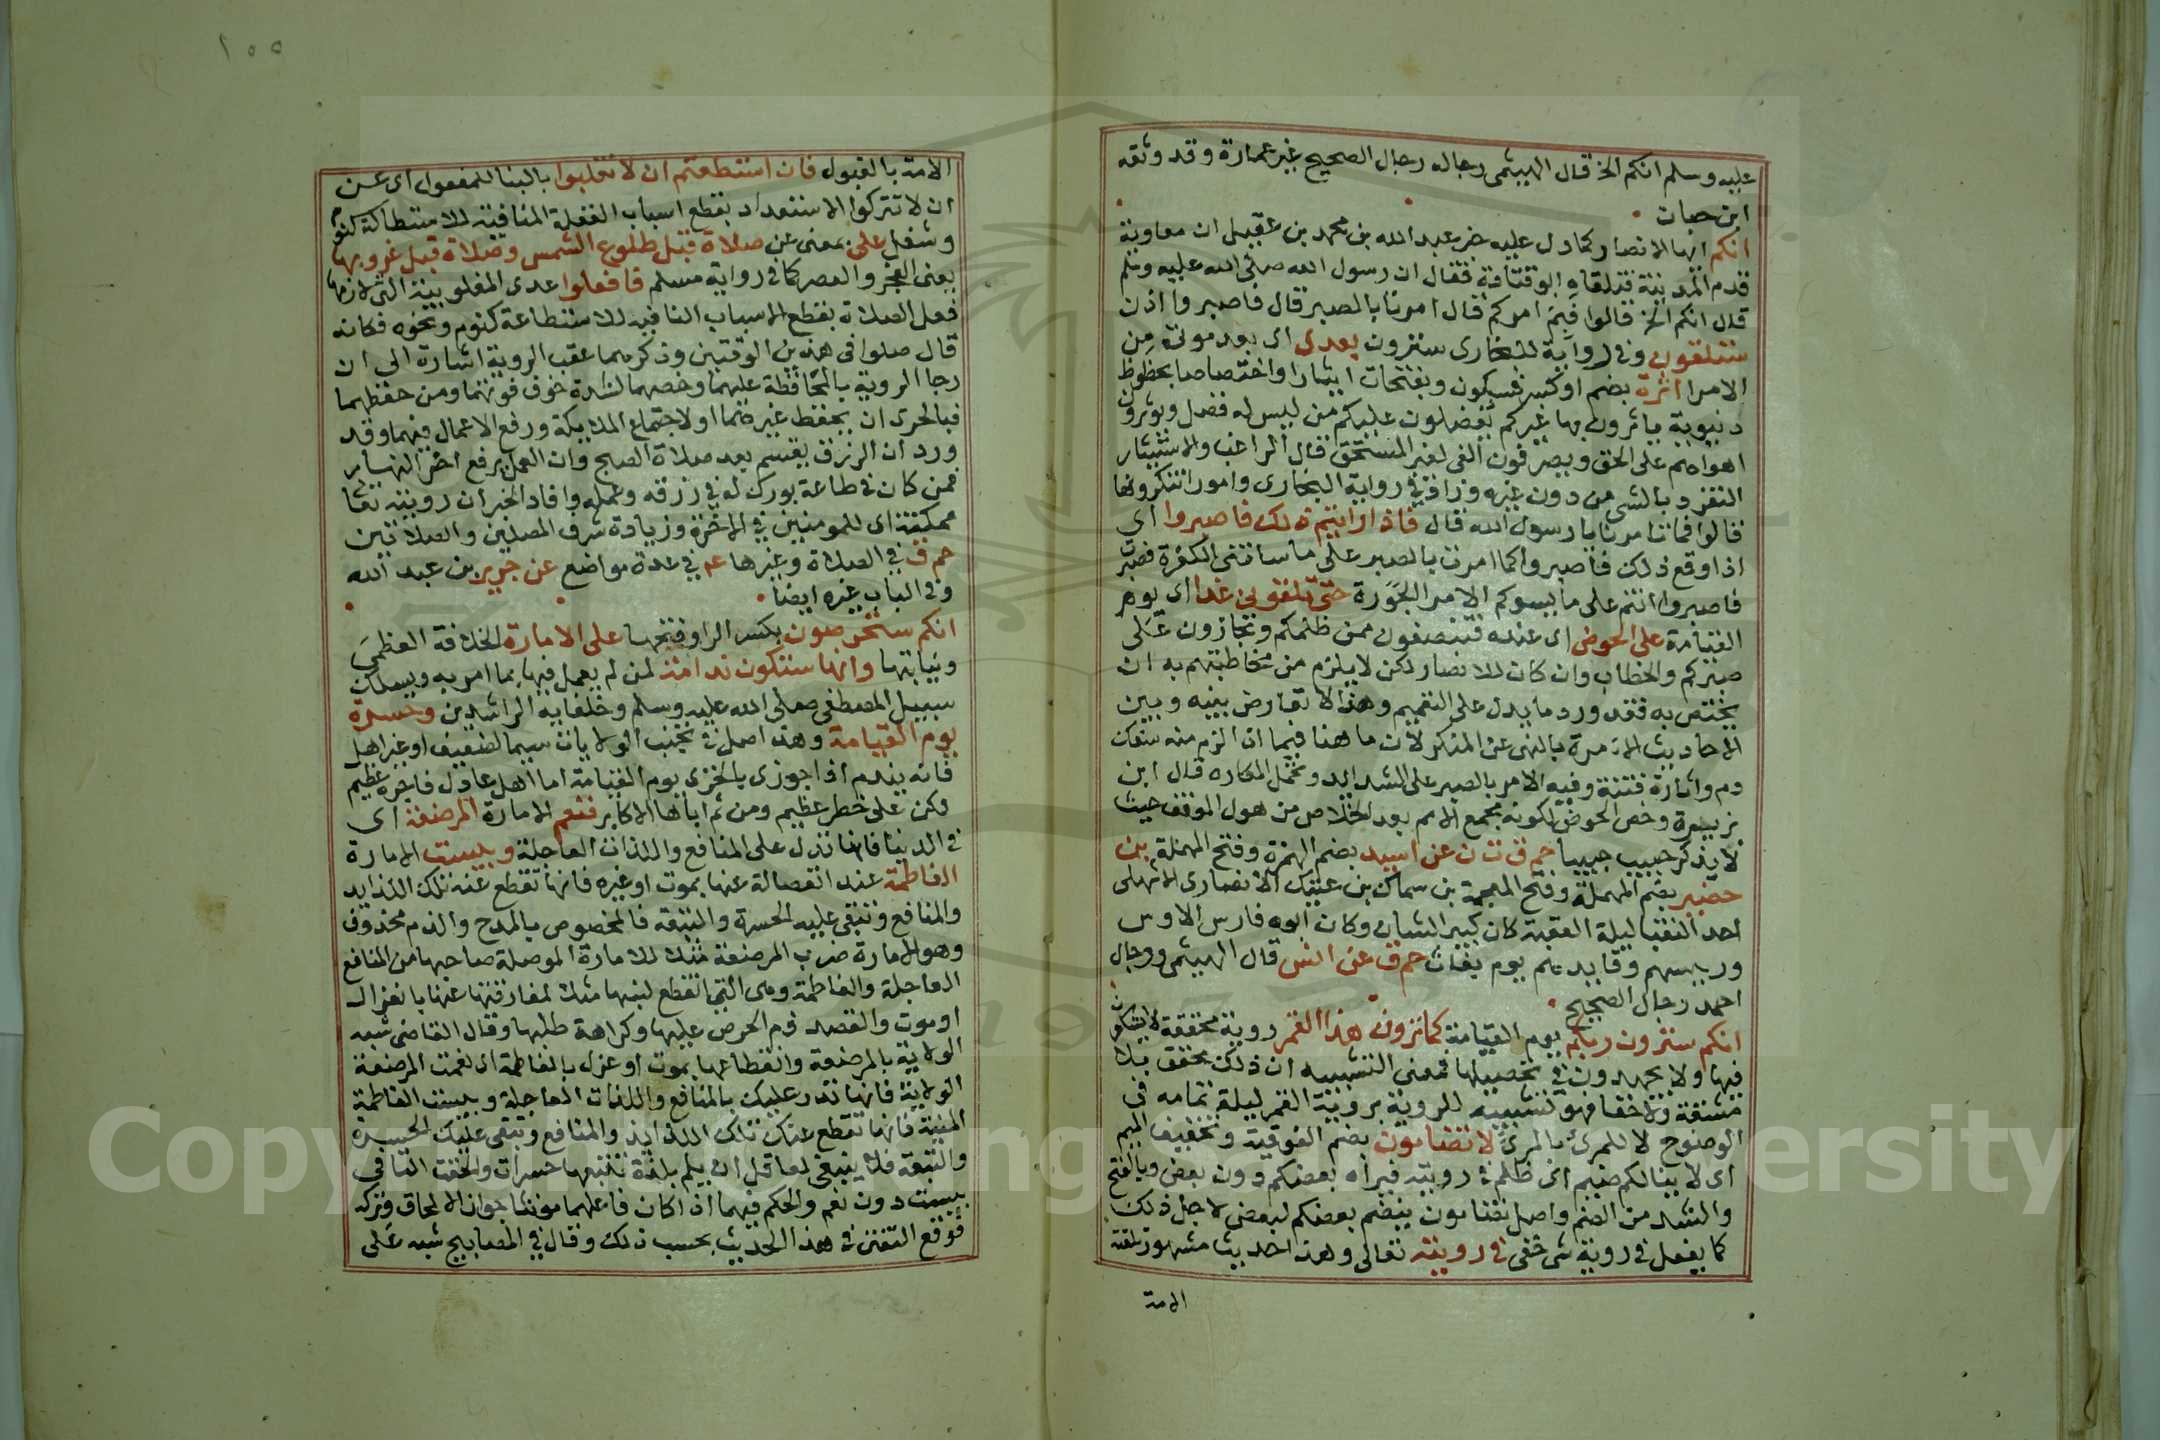 عليه وسلم انكم الخ قال الهيثمى رجاله رجال الصحيح غير عمارة وقد وثقه
ابن حبان
انكم ايها الانصار كما دل عليه خبر عبد الله بن محمد بن عقيل ان معاوية
قدم المدينة فتلقاه ابو قتادة فقال ان رسول الله صلى الله عليه وسلم
قال انكم الخ قالوا فبم امركم قال امرنا بالصبر قال فاصبروا اذن
ستلقون وفى رواية للبخارى سترون بعدى اى بعد موتى من
الامرا اثرة بضم او كسر فسكون وبفتحات ايثارا واختصاصا بحظوظ
دنيوية ياثرون بها غيركم يفضلون عليكم من ليس له فضل ويوثرون
اهواهم على الحق ويصرفون الفى لغير المستحق قال الراغب والاستيثار
التفرد بالشى من دون غيره وزاد فى رواية البخارى وامورا تنكرونها
قالوا فما تامرنا يا رسول الله قال فاذا رايتم ذلك فاصبروا اى
اذا وقع ذلك فاصبروا كما امرت بالصبر على ما سامتنى الكفرة فصبرت
فاصبروا انتم على ما يسوكم الامرا الجورة حتى تلقونى غدا اى يوم
القيامة على الحوض اى عنده فتنصفون ممن ظلمكم وتجازون على
صبركم والخطاب وان كان للانصار لكن لا يلزم من مخاطبتهم به ان
يختص به فقد ورد ما يدل على التعميم وهذا لا تعارض بينه وبين
الاحاديث الامرة بالنهى عن المنكر لان ما هنا فيما اذا لزم منه سفك
دم واثارة فتنة وفيه الامر بالصبر على الشدايد وتحمل المكاره قال ابن
بزيزة وخص الحوض لكونه مجمع الامم بعد الخلاص من هول الموقف حيث
لا يذكر حبيب حبيبا حم ق ت ن عن اسيد بضم الهمزة وفتح المهملة بن
حضير بضم المهملة وفتح المعجمة بن سماك بن عتيك الانصارى الاشهلى
احد النقبا ليلة العقبة كان كبير الشان وكان ابوه فارس الاوس
ورييسهم وقايدهم يوم بغاث حم ق عن انس قال الهيثمى ورجال
احمد رجال الصحيح
انكم سترون ربكم يوم القيامة كما ترون هذا القمر روية محققة لا تشكون
فيها ولا تجهدون فى تحصيلها فمعنى التشبيه ان ذلك محقق بلا
مشقة ولا خفا فهو تشبيه للروية بروية القمر ليلة تمامه فى
الوضوح لا للمرى بالمرى لا تضامون بضم الفوقية وتخفيف الميم
اى لا ينالكم ضيم اى ظلم فى رويته فيراه بعضكم دون بعض وبالفتح
والشد من الضم واصل تضامون ينضم بعضكم لبعض لاجل ذلك
كما يفعل فى روية شى خفى فى رويته تعالى وهذا حديث مشهور تلقته
الامة
١٥٥
الامة بالقبول فان استطعتم ان لا تغلبوا بالبنا للمفعول اى عن
ان لا تتركوا الاستعداد بقطع اسباب الغفلة المنافية للاستطاعة كنوم
وشغل على بمعنى عن صلاة قبل طلوع الشمس وصلاة قبل غروبها
يعنى الفجر والعصر كما فى رواية مسلم فافعلوا عدم المغلوبية التى لازمها
فعل الصلاة بقطع الاسباب المنافيه للاستطاعة كنوم ونحوه فكانه
قال صلوا فى هذين الوقتين وذكرهما عقب الروية اشارة الى ان
رجا الروية بالمحافظة عليهما وخصهما لشدة خوف فوتهما ومن حفظهما
فبالحرى ان يحفظ غيرهما او لاجتماع الملايكة ورفع الاعمال فيهما وقد
ورد ان الرزق يقسم بعد صلاة الصبح وان العمل يرفع اخر النهار
فمن كان فى طاعة بورك له فى رزقه وعمله وافاد الخبر ان رويته تعا
ممكنة اى للمومنين فى الاخرة وزيادة شرف المصلين والصلاتين
حم ق فى الصلاة وغيرها عم فى عدة مواضع عن جرير بن عبد الله
وفى الباب غيره ايضا
انكم ستحرصون بكسر الرا وفتحها على الامارة الخلافة العظمى
ونيابتها وانها ستكون ندامة لمن لم يعمل فيها بما امر به ويسلك
سبيل المصطفى صلى الله عليه وسلم وخلفايه الراشدين وحسرة
يوم القيامة وهذا اصل فى تجنب الولايات سيما لضعيف او غير اهل
فانه يندم اذا جوزى بالخزى يوم القيامة اما اهل عادل فاجره عظيم
لكن على خطر عظيم ومن ثم اباها الاكابر فنعم الامارة المرضعة اى
فى الدنيا فانها تدل على المنافع واللذات العاجلة وبيست الامارة
الفاطمة عند انفصالة عنها بموت او غيره فانها تقطع عنه تلك اللذايد
والمنافع وتبقى عليه الحسرة والتبعة فالمخصوص بالمدح والذم محذوف
وهو الامارة ضرب المرضعة مثلا للامارة الموصلة صاحبها من المنافع
العاجلة والفاطمة وهى التى انقطع لبنها مثلا لمفارقتها عنها بانعزال
او موت والقصد ذم الحرص عليها وكراهة طلبها وقال القاضى شبه
الولاية بالمرضعة وانقطاعها بموت او عزل بالفاطمة اى نعمت المرضعة
الولاية فانها تدر عليك بالمنافع واللذات العاجلة وبيست الفاطمة
المنية فانها تقطع عنك تلك اللذايذ والمنافع وتبقى عليك الحسرة
والتبعة فلا ينبغى لعاقل ان يلم بلذة تتبعها حسرات والحقت التا فى
بيست دون نعم والحكم فيهما اذا كان فاعلهما مونثا جواز الالحاق وتركه
فوقع التفنن فى هذا الحديث بحسب ذلك وقال فى المصابيح شبه على